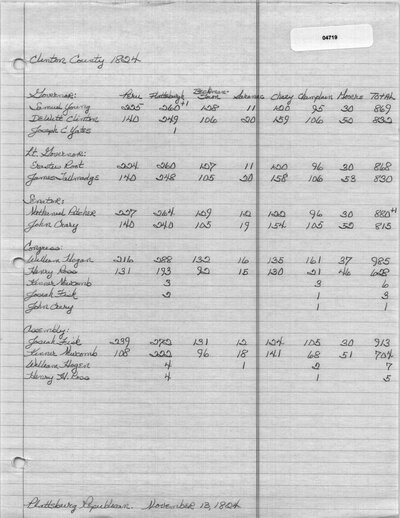 04719
Clinton County 1824
Governor: Peru Plattsburgh Beekman-town Saranac Chazy Champlain Mooers Total
Samuel Young 225 260+1 128 11 120 95 30 869
DeWitt Clinton 140 249 106 20 159 106 52 832
Joseph C Yates 1
Lt. Governor:
Erastus Root 224 260 127 11 120 96 30 868
James Tallmadge 140 248 105 20 158 106 53 830
Senator:
Nathaniel Pitcher 227 264 129 12 122 96 30 880+1
John Crary 140 240 105 19 154 105 52 815
Congress:
William Hogan 216 288 132 16 135 161 37 985
Henry Ross 131 193 92 15 130 21 46 628
Kinner Newcomb 3 3 6
Josiah Fisk 2 1 3
John Crary 1 1
Assembly:
Josiah Fisk 239 272 131 12 124 105 30 913
Kinner Newcomb 108 222 96 18 141 68 51 704
William Hogan 4 1 2 7
Henry H. Ross 4 1 5
Plattsburg Republican. November 13, 1824